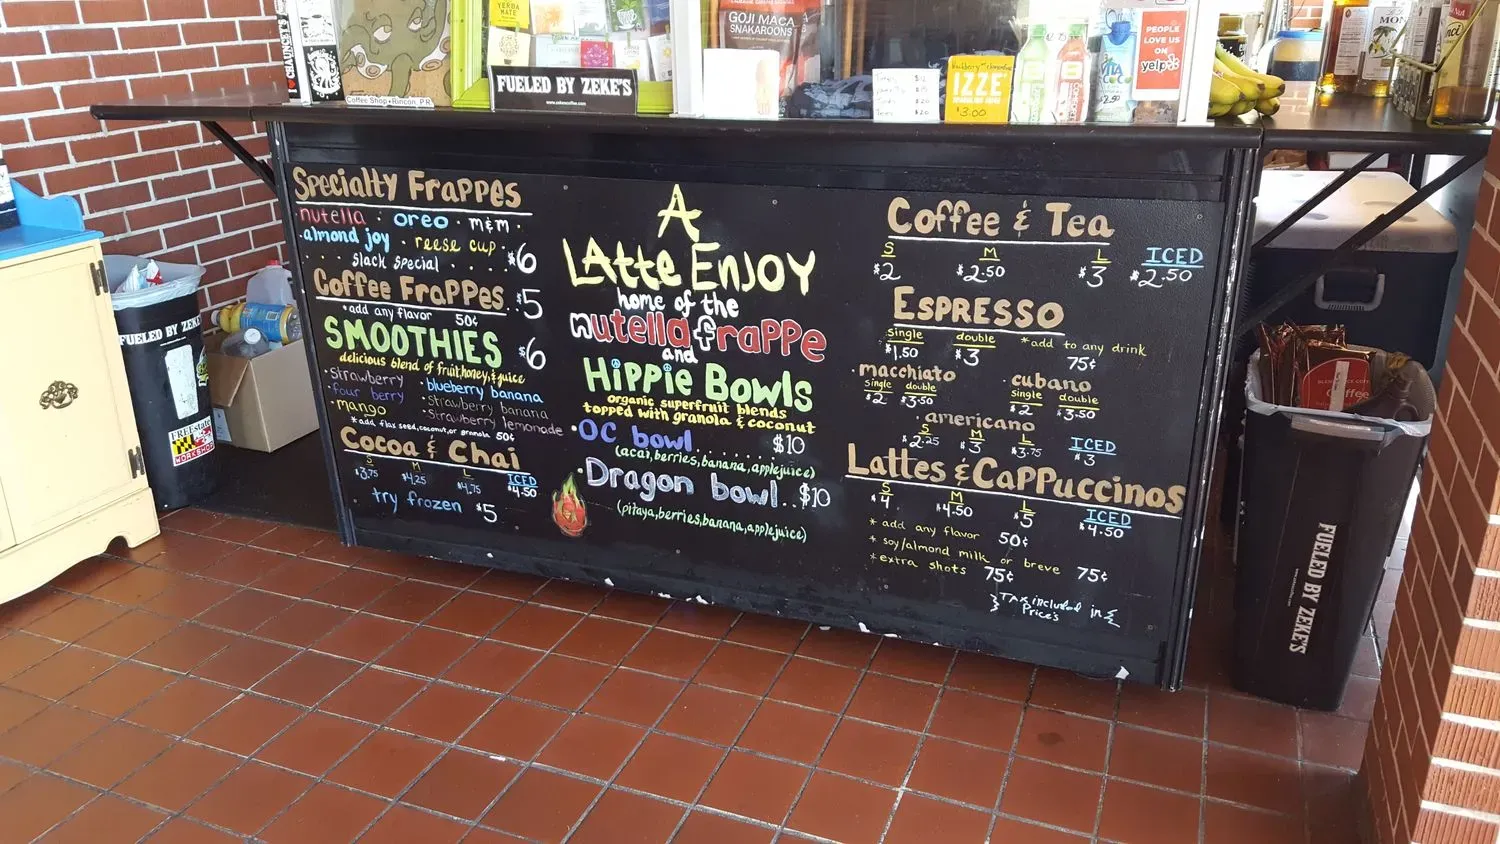 CHAUNCEY'S
Coffee Shop • Rincon, P.R
YERBA
MATE
FUELED BY ZEKE'S
www.zekescoffee.com
GOJI MACA
SNAKAROONS
IZZE
$3.00
VITA
COCO
$2.50
PEOPLE
LOVE US
ON
yelp
FUELED BY ZEKE'S
FREEstate
WORKSHOP
Specialty Frappes
nutella · oreo · m&m ·
·almond joy · reese cup ·
· · · slack special . . . . . $6
Coffee Frappes..$5
*add any flavor 50¢
SMOOTHIES $6
delicious blend of fruit,honey,&juice
·Strawberry ·blueberry banana
·four berry ·Strawberry banana
·mango ·Strawberry lemonade
*add flax seed,coconut,or granola 50¢
Cocoa & Chai
S M L ICED
$3.75 $4.25 $4.75 $4.50
try frozen $5
A
LAtte ENJOY
home of the
nutella frappe
and
HiPPiE BOWLS
organic superfruit blends
topped with granola & coconut
·OC bowl........ $10
(acai,berries,banana,applejuice)
·Dragon bowl..$10
(pitaya,berries,banana,applejuice)
Coffee & Tea
S M L ICED
$2 $2.50 $3 $2.50
ESPRESSO
single double *add to any drink
$1.50 $3 75¢
·macchiato ·cubano
single double single double
$2 $3.50 $2 $3.50
·americano
S M L ICED
$2.25 $3 $3.75 $3
Lattes & CAPPuccinos
S M L ICED
$4 $4.50 $5 $4.50
* add any flavor 50¢
* soy/almond milk or breve 75¢
*extra shots 75¢
}TAX included in {
Price's
Coffee
FUELED BY ZEKE'S